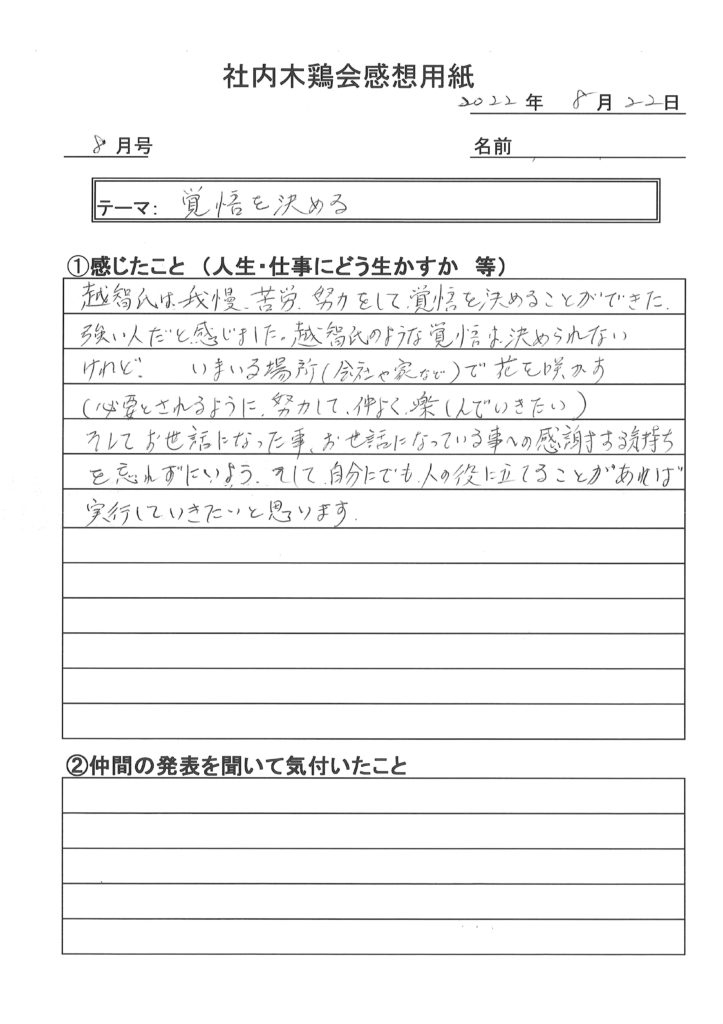 社内木鶏会感想用紙
2022年 8月22日
8月号 名前
テーマ: 覚悟を決める
①感じたこと (人生・仕事にどう生かすか 等)
越智氏は、我慢、苦労、努力をして、覚悟を決めることができた、
強い人だと感じました。越智氏のような覚悟は決められない
けれど、 いまいる場所(会社や家など)で花を咲かす
(必要とされるように、努力して、仲よく、楽しんでいきたい)
そしてお世話になった事、お世話になっている事への感謝する気持ち
を忘れずにいよう。そして、自分にでも、人の役に立てることがあれば
実行していきたいと思います。
②仲間の発表を聞いて気付いたこと